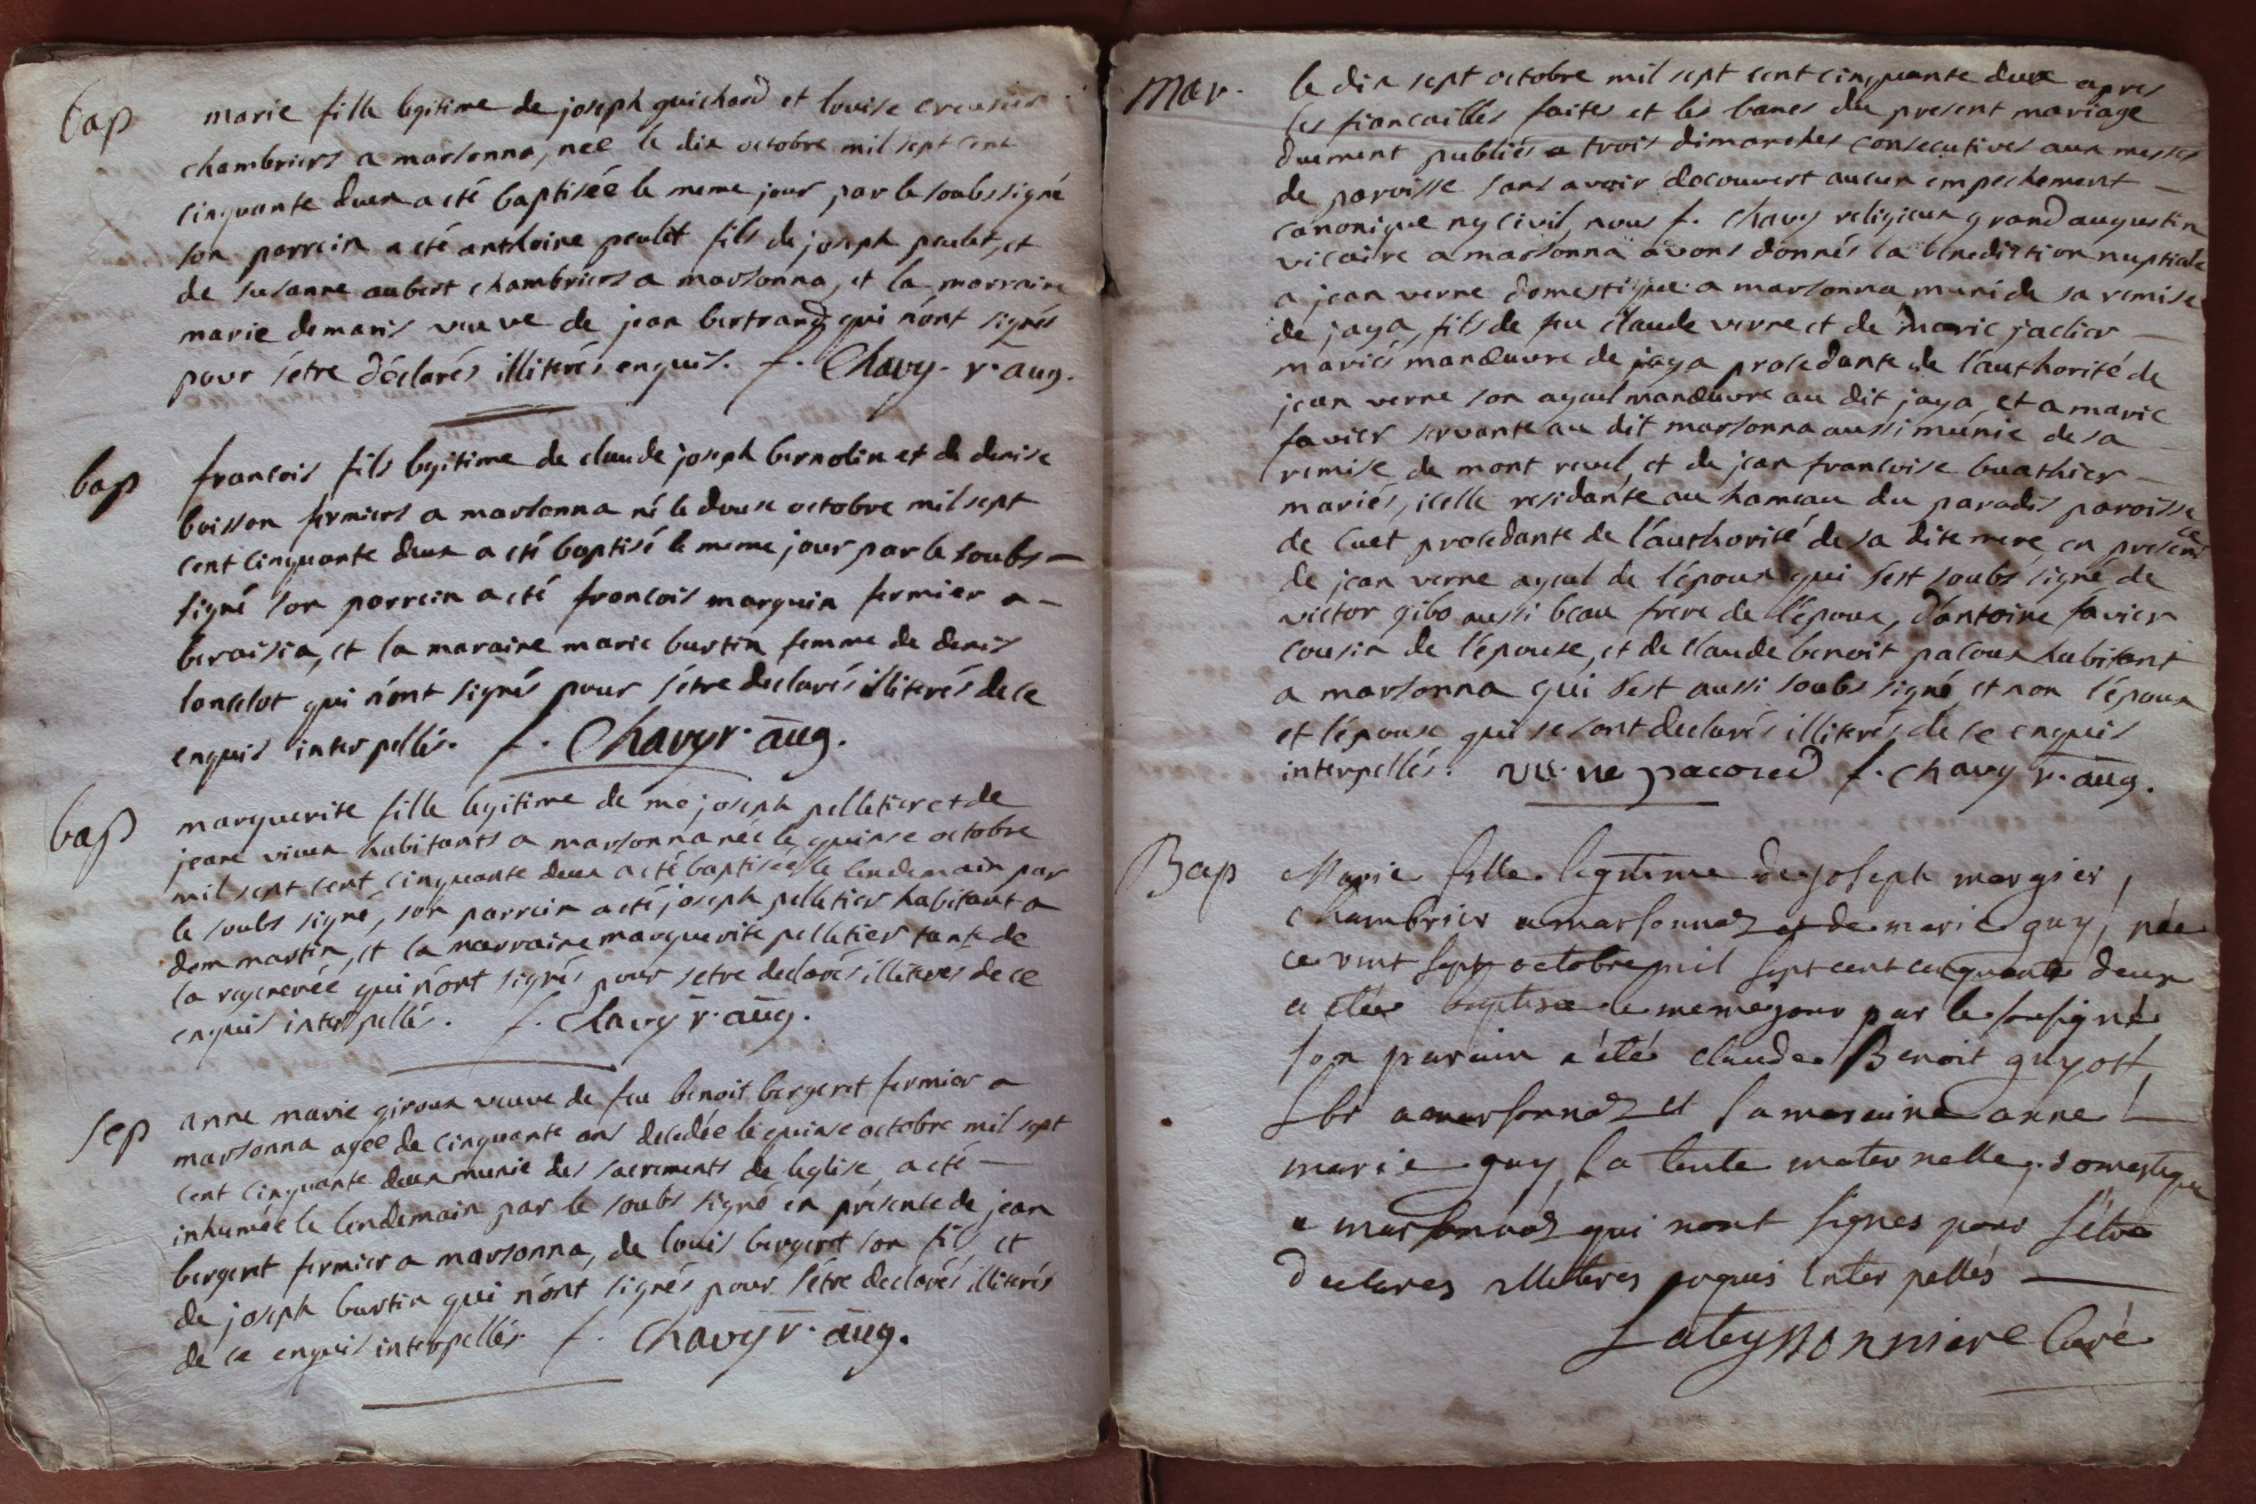 bap
marie fille legitime de joseph guichard et louise creusier
chambriers a marsonna, nee le dix octobre mil sept cent
cinquante deux a eté baptisée le meme jour par le soubs signé
son parrein a eté anthoine peulet fils de joseph peulet, et
de susanne aubert chambriers a marsonna, et la marraine
marie demaris veuve de jean bertrand qui n'ont signés
pour s'étre déclarés illiterés enquis. f. Chavy. r. aug.
bap
francois fils legitime de claude joseph bernolin et de denise
boisson fermiers a marsonna né le douse octobre mil sept
cent cinquante deux a eté baptisé le meme jour par le soubs-
signé son parrein a eté francois marguin fermier a-
beraisia, et la maraine marie burtin femme de denis
lancelot qui n'ont signés pour s'étre declarés illiterés de ce
enquis interpellés. f. Chavy r. aug.
bap
marguerite fille legitime de me joseph pelletier et de
jeane vieux habitants a marsonna née le quinse octobre
mil sept cent cinquante deux a eté baptisée le lendemain par
le soubs signé, son parrein a eté joseph pelletier habitant a
dom martin, et la marraine marguerite pelletier tante de
la regenerée qui n'ont signés pour s'etre declarés illiteres de ce
enquis interpellés. f. Chavy r. aug.
sep
anne marie giroux veuve de feu benoit bergeret fermier a
marsonna agée de cinquante ans decedée le quinse octobre mil sept
cent cinquante deux munie des sacrements de leglise a eté-
inhumée le lendemain par le soubs signé en présence de jean
bergeret fermier a marsonna, de louis bergeret son fils et
de joseph burtin qui n'ont signés pour s'étre declarés illiterés
de ce enquis interpellés. f. Chavy r. aug.
mar.
le dix sept octobre mil sept cent cinquante deux apres
les fiancailles faites et les bancs du present mariage
duement publiés a trois dimanches consecutives aux messes
de paroisse sans avoir decouvert aucun empechement-
canonique ny civil, nous f. Chavy religieux grand augustin
vicaire a marsonna avons donnés la benediction nuptiale
a jean verne domestique a marsonna muni de sa remise
de jaya, fils de feu claude verne et de marie jaclier-
mariés manœuvre de jaya procedante de l'authorité de
jean verne son ayeul manœuvre au dit jaya, et a marie
favier servante au dit marsonna aussi munie de sa
remise de mont revel, et de jean francoise buathier-
mariés, icelle residante au hameau du paradis paroisse
de cuet procedante de l'authorité de sa dite mere en presence
de jean verne ayeul de l'époux qui s'est soubs signé de
victor gibo aussi beau frere de l'époux, d'antoine favier
cousin de l'épouse, et de claude benoit pacoux habitant
a marsonna qui s'est aussi soubs signé et non l'époux
et l'épouse qui se sont declarés illiterés de ce enquis
interpellés. verne pacoud f. chavy r. aug.
Bap
Marie fille legitime de joseph morgier,
chambrier a marsonnaz et de marie guy, née
ce vint sept octobre mil sept cent cinquante deux
a etée baptisée le meme jour par le sousigné
son parain a été claude Benoit guyott
a marsonnaz et sa maraine anne
marie guy sa tente maternelle domestique
a marsonnaz qui nont signes pour s'être
declares illiteres enquis interpellés
Lateyssonniere Curé